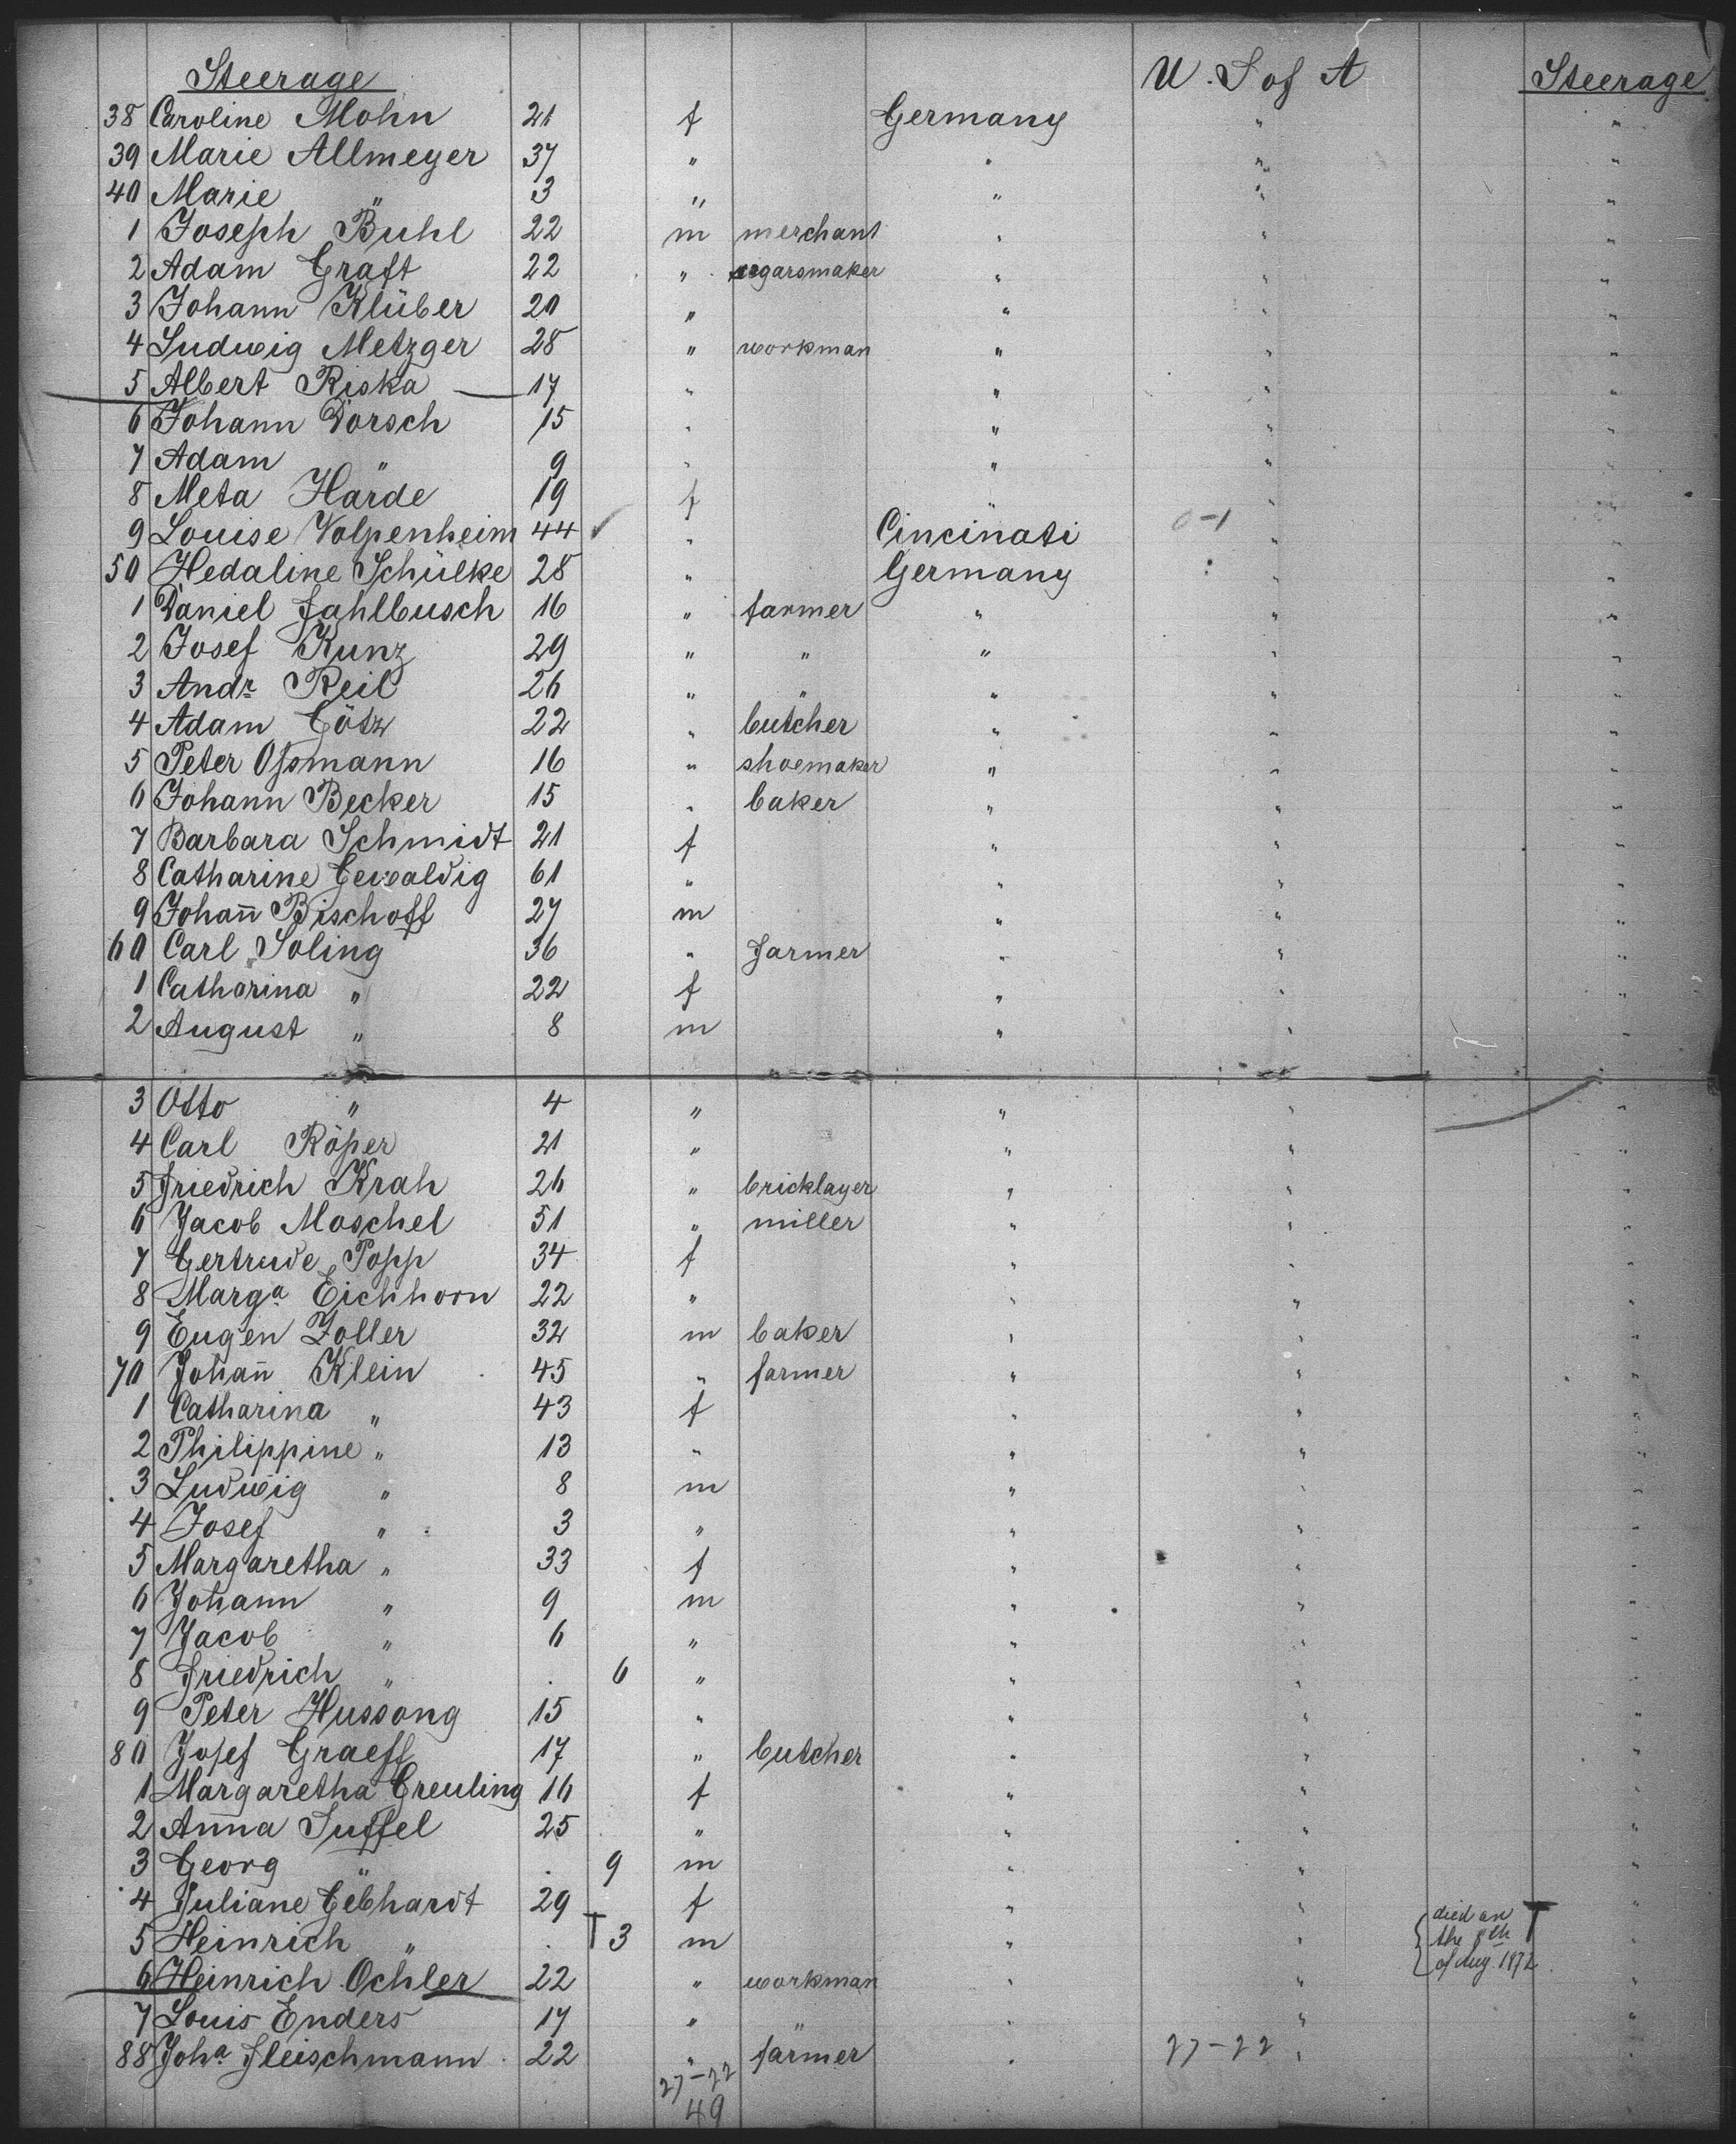 Steerage U. S of A Steerage
38 Caroline Mohn 21 f Germany " "
39 Marie Allmeyer 37 " " " "
40 Marie " 3 " " " "
1 Joseph Buhl 22 m merchant " " "
2 Adam Graft 22 " cigarsmaker " " "
3 Johann Klüber 20 " " " "
4 Ludwig Metzger 28 " workman " " "
5 Albert Riska 17 " " " "
6 Johann Dorsch 15 " " " "
7 Adam " 9 " " " "
8 Meta Harde 19 f " " "
9 Louise Volpenheim 44 " Cincinati 0-1 " "
50 Hedaline Schülke 28 " Germany " "
1 Daniel Fahlbusch 16 " farmer " " "
2 Josef Kunz 29 " " " " "
3 Andr Reil 26 " " " " "
4 Adam Götz 22 " butcher " " "
5 Peter Ossmann 16 " shoemaker " " "
6 Johann Becker 15 " baker " " "
7 Barbara Schmidt 21 f " " "
8 Catharine Gewaldig 61 " " " "
9 Johan̄ Bischoff 27 m " " "
60 Carl Soling 36 " farmer " " "
1 Catharina " 22 f " " "
2 August " 8 m " " "
3 Otto " 4 " " " "
4 Carl Röper 21 " " " "
5 Friedrich Krah 26 " bricklayer " " "
6 Jacob Moschel 51 " miller " " "
7 Gertrude Popp 34 f " " "
8 Marga Eichhorn 22 " " " "
9 Eugen Zoller 32 m baker " " "
70 Johan̄ Klein 45 " farmer " " "
1 Catharina " 43 f " " "
2 Philippine " 13 " " " "
3 Ludwig " 8 m " " "
4 Josef " 3 " " " "
5 Margaretha " 33 f " " "
6 Johann " 9 m " " "
7 Jacob " 6 " " " "
8 Friedrich " . 6 " " " "
9 Peter Hussong 15 " " " "
80 Josef Graeff 17 " butcher " " "
1 Margaretha Greuling 16 f " " "
2 Anna Suffel 25 " " " "
3 Georg " . 9 m " " "
4 Juliane Gebhardt 29 f " " "
5 Heinrich " . T 3 m " " died on the 8th of Aug. 1872 T "
6 Heinrich Ochler 22 " workman " " "
7 Louis Enders 17 " " " " "
88 Joha Fleischmann 22 " farmer " 27-22 " "
27-22
49